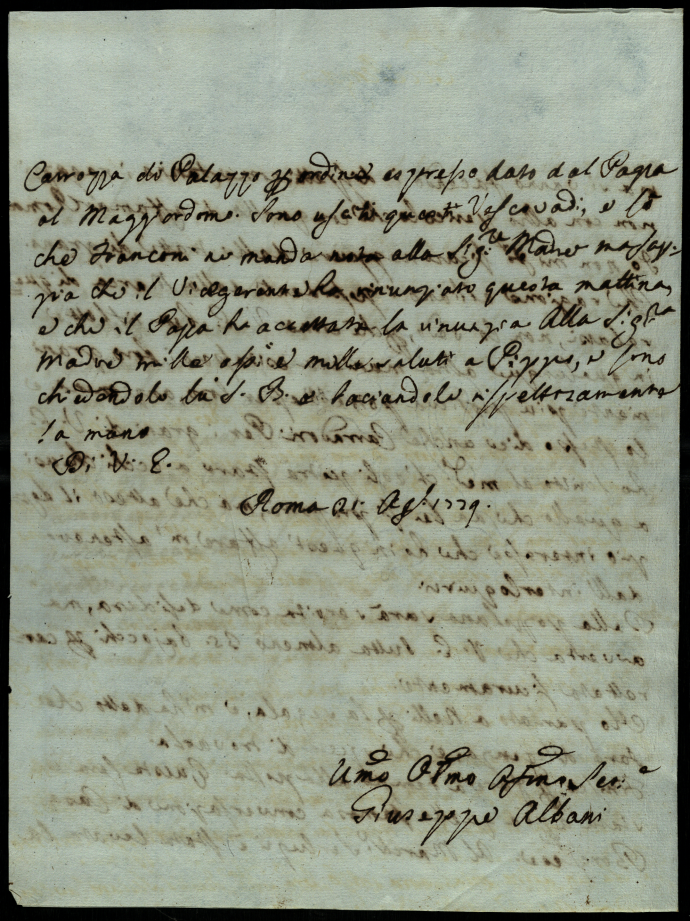 Carrozza di Palazzo per ordine espresso dato dal Papa
al Maggiordomo. Sono usciti questi Vescovadi, e lo
che Franconi ne manda nota alla Sig.ra Madre ma sap-
pia che il Vicegerente ha rinunziato questa mattina,
e che il Papa ha accettata la rinunzia Alla Sig.ra
Madre mille osse.i e mille saluti a Pippo, e sono
chiedendole la S. B. e baciandole rispettosamente
la mano
Di V. E.
Roma 21. Ag.o 1779.
Umo Obmo Affmo Ser.e
Giuseppe Albani